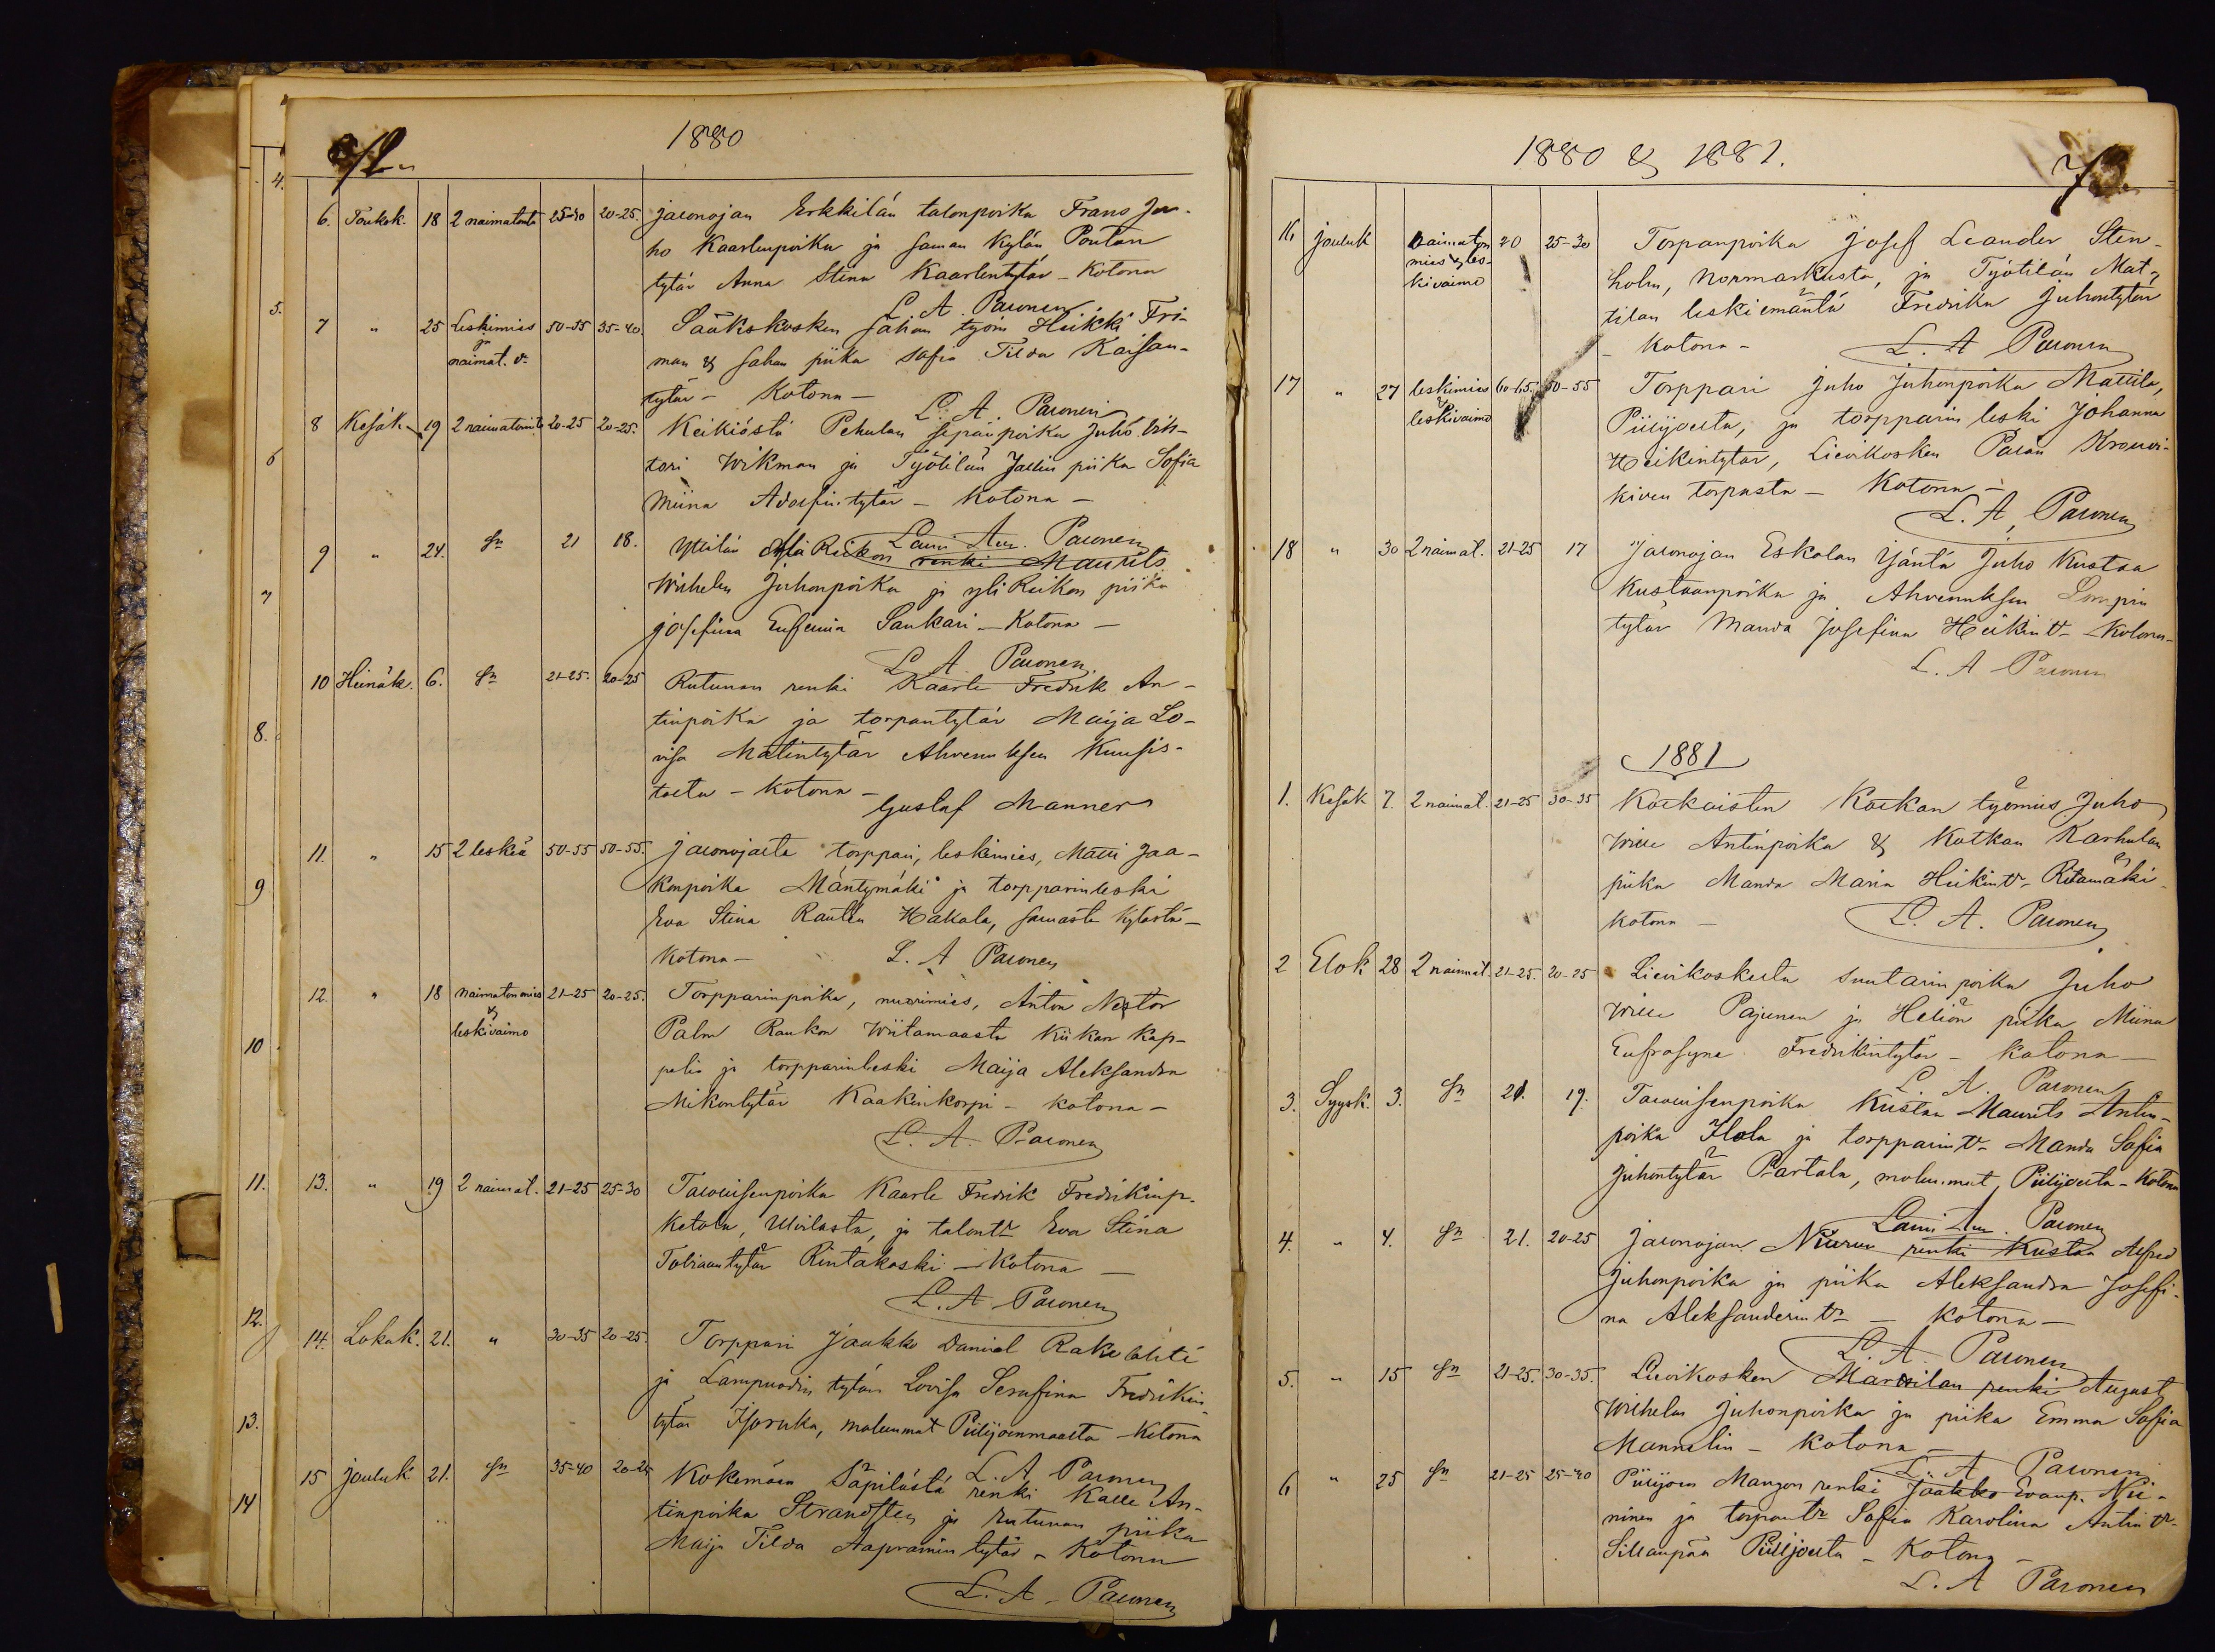 1880
6. Toukok. 18 2 naimatonta 25-30 20-25. Jawnojan Erkkilän talonpoika Frans Ju-
ho Kaarlenpoika ja saman Kylän Poutan
tytär Anna Stina Kaarlentytär - Kotona
L. A. Paronen
7 " 25 Leskimies 50-55 35-40. Sääkskosken sahan työm Heikki Fri-
naimat. v. man & sahan piika Sofia Tilda Kaisan-
tytär - Kotona -
L. A. Paronen
8 Kesäk. 19 2 naimatonta 20-25 20-25. Keikiöstä Pekulan sepänpoika Juho Wih-
tori Wikman ja Työtilän Jallin piika Sofia
Miina Adolfintytär - Kotona -
Lauri Aur. Paronen
9 " 24. Sn 21 18. Yttilän Yli Reikon renki Maurits
Wilhelm Juhonpoika ja yli Reikon piika
Josefina Eufemia Saukari - Kotona -
L. A. Paronen
10 Heinäk. 6. Sn 21-25. 20-25 Rutunan renki Kaarle Fredrik An-
tinpoika ja torpantytär Maija Lo-
visa Matintytär Ahvenuksen Kuusis-
tosta - Kotona -
Gustaf Manner
11. " 15 2 leskeä 50-55 50-55. Jawnojalta torppari, leskimies, Matti Jaa-
konpoika Mäntymäki ja torpparinleski
Eva Stina Rautin Hakala, samasta Kylästä -
Kotona -
L. A Paronen
12. " 18 naimaton mies 21-25 20-25. Torpparinpoika, nuorimies, Anton Nestor
& leskivaimo Palm Raukon Wiitamaasta Kiikan Kap-
pelia ja torpparinleski Maija Aleksandra
Mikontytär Kaakinkorpi - Kotona -
L. A. Paronen
13. " 19 2 naimat. 21-25 25-30 Talollisenpoika Kaarle Fredrik Fredrikinp.
Ketola, Ulvilasta, ja talontr Eva Stina
Tobiaantytär Rintakoski - Kotona -
L. A. Paronen
14. Lokak. 21. " 30-35 20-25. Torppari Jaakko Daniel Rakolahti
ja Lampuodin tytär Lovisa Serafina Fredrikin
tytär Isoruka, molemmat Piilijoenmaalta - Kotona
L. A Paronen
15 Jouluk. 21. Sn 35-40 20-25 Kokemäen Säpilästä renki Kalle An-
tinpoika Strandsten ja Rutunan piika
Maija Tilda Aapramintytär - Kotona
L. A. Paronen
4.
5.
6
7
8.
9
10
11.
12.
13.
14
1880 & 1881.
73.
16 Jouluk naimaton 20 25-30 Torpanpoika Josef Leander Sten-
mies & les- holm, Normarkusta, ja Työtilän Mat-
kivaimo tilan leskiemäntä Fredrika Juhontytär
- Kotona - L. A Paronen
17 " 27 leskimies 60-65. 50-55 Torppari Juho Juhonpoika Mattila,
& leskivaimo Piilijoelta, ja torpparin leski Johanna
Heikintytär, Lievikosken Palan Krouvi-
kiven torpasta - Kotona -
L. A, Paronen
18 " 30 2 naimat. 21-25 17 Jawnojan Eskolan Isäntä Juho Kustaa
Kustaanpoika ja Ahvenuksen Lempin
tytär Manda Josefina Heikin tr - Kotona -
L. A Paronen
1881
1. Kesäk 7. 2 naimat. 21-25 30-35 Koskoisten Koskan työmies Juho
Wille Antinpoika & Kotkan Karhulan
piika Manda Maria Heikin tr - Ritamäki -
Kotona - L. A. Paronen
2 Elok 28 2 naimat. 21-25. 20-25 Lievikoskelta suutarin poika Juho
Wille Pajunen ja Heliön piika Miina
Eufrosyna Fredrikintytär - Kotona -
L. A. Paronen
3. Syysk. 3. Sn 21. 19. Talollisenpoika Kustaa Maurits Antin-
poika Ilola ja torpparin tr Manda Sofia
Juhontytär Partala, molemmat Piilijoelta - Kotona
Lauri Aur. Paronen
4. " 4. Sn 21. 20-25 Jawnojan Niuron renki Kustaa Alfred
Juhonpoika ja piika Aleksandra Josefi-
na Aleksanderin tr - Kotona -
L. A. Paronen
5. " 15 Sn 21-25. 30-35. Lievikosken Marttilan renki August
Wilhelm Juhonpoika ja piika Emma Sofia
Mannelin - Kotona -
L. A Paronen
6 " 25 Sn 21-25 25-30 Piilijoen Mangon renki Jaakko Evanp. Nie-
ninen ja torpantr Sofia Karolina Antin tr
Sillanpää Piilijoelta - Kotona -
L. A Paronen